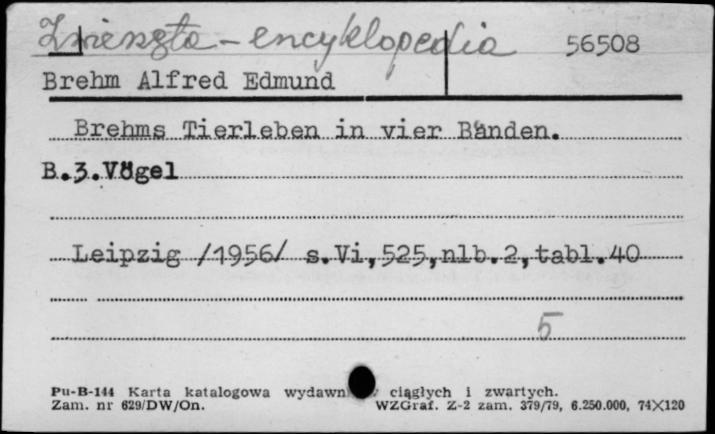 Zwierzęta - encyklopedia 56508
Brehm Alfred Edmund
Brehms Tierleben in vier Bänden.
B.3.Vögel
Leipzig /1956/ s.Vi,525,nlb.2,tabl.40
5
Pu-B-144 Karta katalogowa wydawn ciągłych i zwartych.
Zam. nr 629/DW/On. WZGraf. Z-2 zam. 379/79, 6.250.000, 74X120